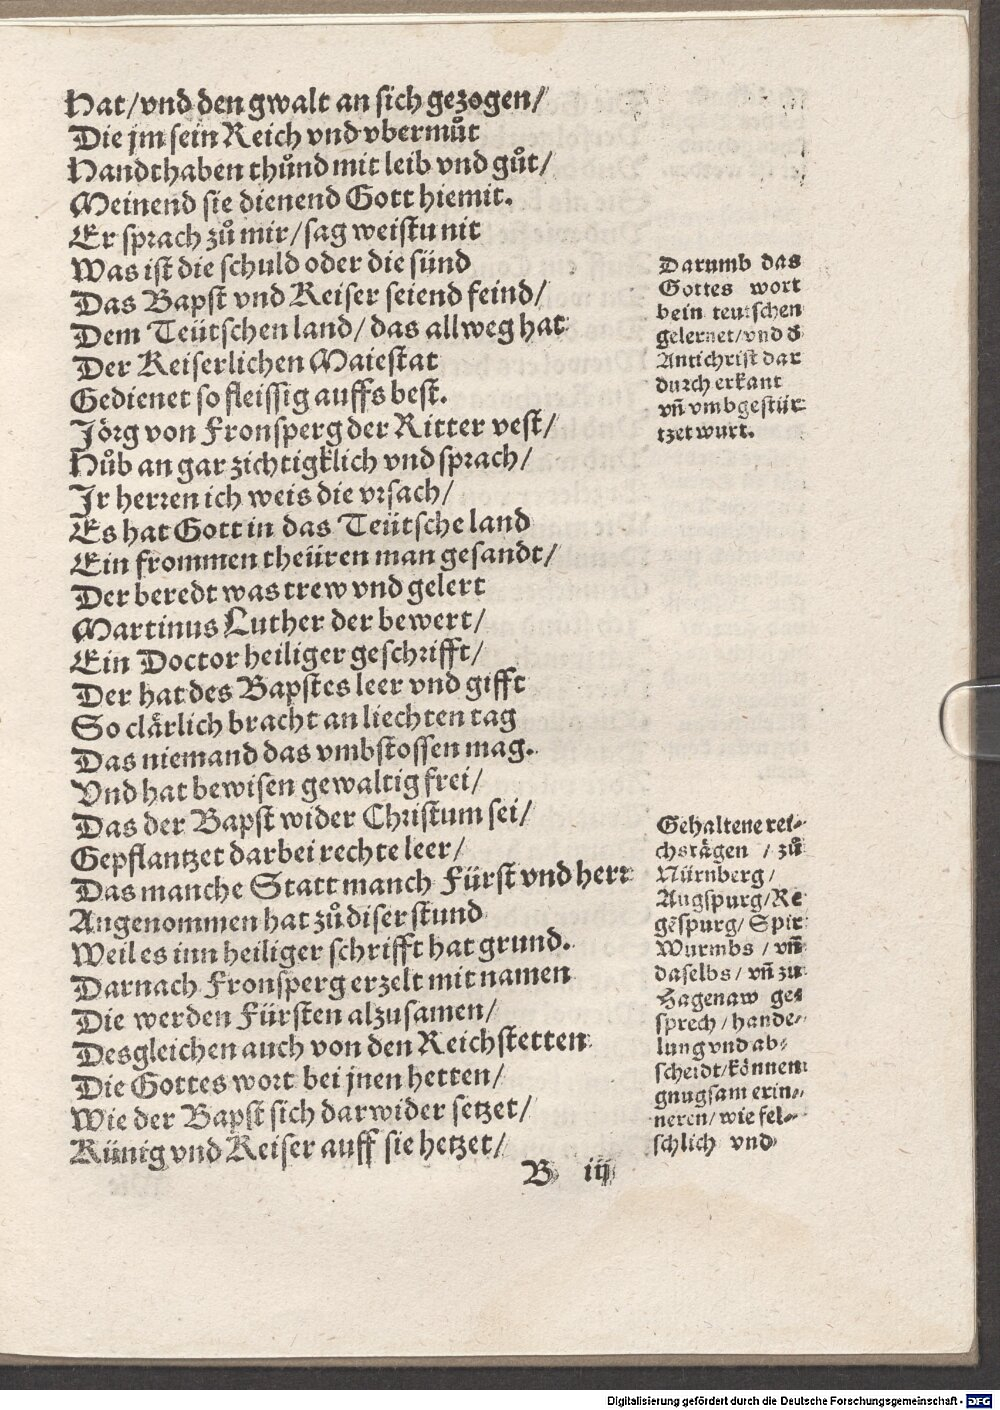 Hat/vnd den gwalt an sich gezogen/
Die jm sein Reich vnd vbermůt
Handthaben thůnd mit leib vnd gůt/
Meinend sie dienend Gott hiemit.
Er sprach zů mir/sag weistu nit
Was ist die schuld oder die sünd
Das Bapst vnd Keiser seiend feind/
Dem Teütschen land/ das allweg hat
Der Keiserlichen Maiestat
Gedienet so fleissig auffs best.
Jörg von Fronsperg der Ritter vest/
Hůb an gar zichtigklich vnd sprach/
Jr herren ich weis die vrsach/
Es hat Gott in das Teütsche land
Ein frommen theüren man gesandt/
Der beredt was trew vnd gelert
Martinus Luther der bewert/
Ein Doctor heiliger geschrifft/
Der hat des Bapstes leer vnd gifft
So clärlich bracht an liechten tag
Das niemand das vmbstossen mag.
Vnd hat bewisen gewaltig frei/
Das der Bapst wider Christum sei/
Gepflantzet darbei rechte leer/
Das manche Statt manch Fürst vnd herr
Angenommen hat zů diser stund
Weil es inn heiliger schrifft hat grund.
Darnach Fronsperg erzelt mit namen
Die werden Fürsten alzusamen/
Desgleichen auch von den Reichstetten
Die Gottes wort bei jnen hetten/
Wie der Bapst sich darwider setzet/
Künig vnd Keiser auff sie hetzet/
B iij
Darumb das
Gottes wort
bein teutschen
gelernet/vnd d
Antichrist dar
durch erkant
vñ vmbgestür
tzet wurt.
Gehaltene rei-
chstägen / zů
Nürnberg/
Augspurg/Re
gẽspurg/ Spir
Wurmbs / vñ
daselbs/ vñ zu
Hagenaw ge-
sprech/ hande-
lung vnd ab-
scheidt/können
gnugsam erin-
neren/ wie fel-
schlich vnd
Digitalisierung gefördert durch die Deutsche Forschungsgemeinschaft - DFG